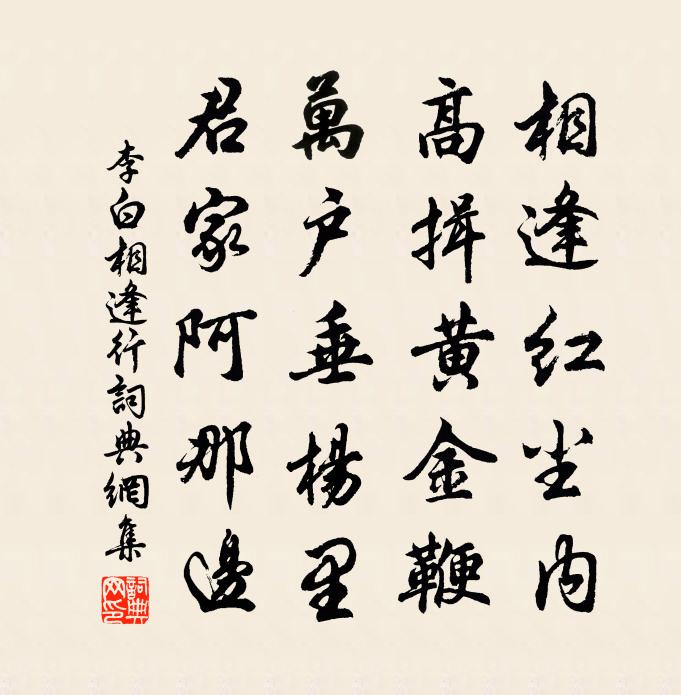 相逢红尘内
高揖黄金鞭
萬户垂楊里
君家阿那邊
李白相逢行詞典網集
詞典網印